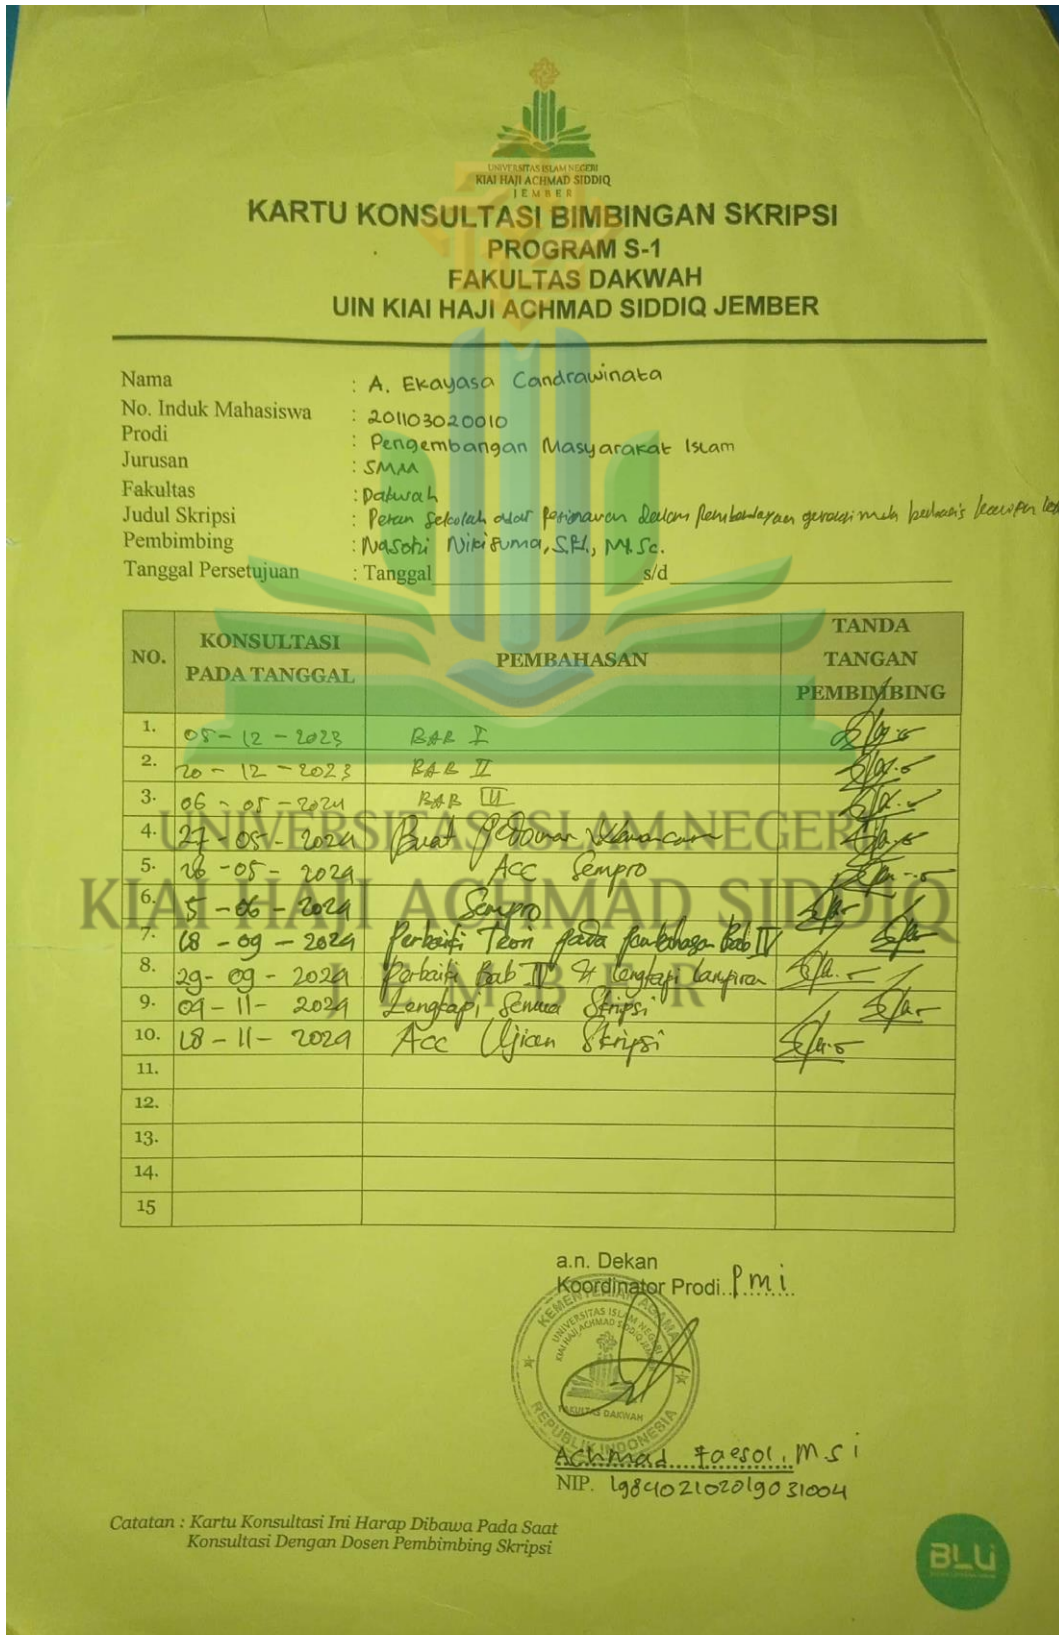 UNIVERSITAS ISLAM NEGERI
KIAI HAJI ACHMAD SIDDIQ
JEMBER
KARTU KONSULTASI BIMBINGAN SKRIPSI
PROGRAM S-1
FAKULTAS DAKWAH
UIN KIAI HAJI ACHMAD SIDDIQ JEMBER
Nama : A. Ekayasa Candrawinata
No. Induk Mahasiswa : 201103020010
Prodi : Pengembangan Masyarakat Islam
Jurusan : SMM
Fakultas : Dakwah
Judul Skripsi : Peran Sekolah adat Dalam Pemberdayaan generasi muda berbasis kearifan
Pembimbing : Nasobi Niki Suma, S.Pd., M.Sc.
Tanggal Persetujuan : Tanggal s/d
NO. KONSULTASI PADA TANGGAL PEMBAHASAN TANDA TANGAN PEMBIMBING
1. 05-12-2023 BAB I
2. 20-12-2023 BAB II
3. 06-05-2024 BAB III
4. 27-05-2024 Buat Pedoman Wawancara
5. 28-05-2024 Acc Sempro
6. 5-06-2024 Sempro
7. 18-09-2024 Perbaiki Teori pada pembahasan Bab IV
8. 29-09-2024 Perbaiki Bab IV & Lengkapi lampiran
9. 04-11-2024 Lengkapi Semua Skripsi
10. 18-11-2024 Acc Ujian Skripsi
11.
12.
13.
14.
15
UNIVERSITAS ISLAM NEGERI
KIAI HAJI ACHMAD SIDDIQ
JEMBER
a.n. Dekan
Koordinator Prodi. PMI
KEMENTERIAN AGAMA
UNIVERSITAS ISLAM NEGERI
KIAI HAJI ACHMAD SIDDIQ JEMBER
FAKULTAS DAKWAH
REPUBLIK INDONESIA
Achmad Faesol, M.Si
NIP. 198402102019031004
Catatan : Kartu Konsultasi Ini Harap Dibawa Pada Saat
Konsultasi Dengan Dosen Pembimbing Skripsi
BLU